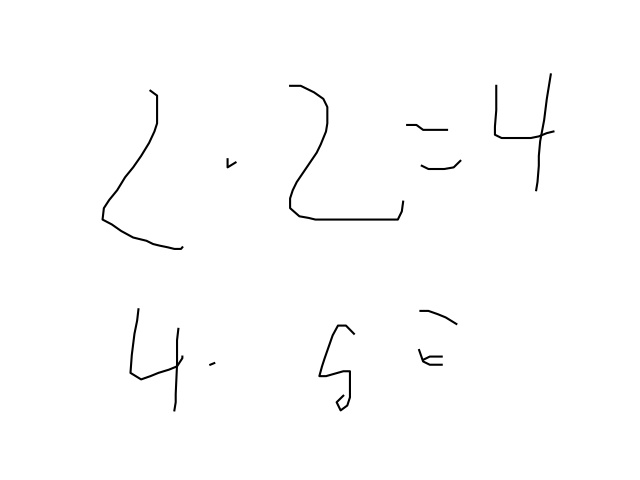 2 · 2 = 4
4 · 5 =